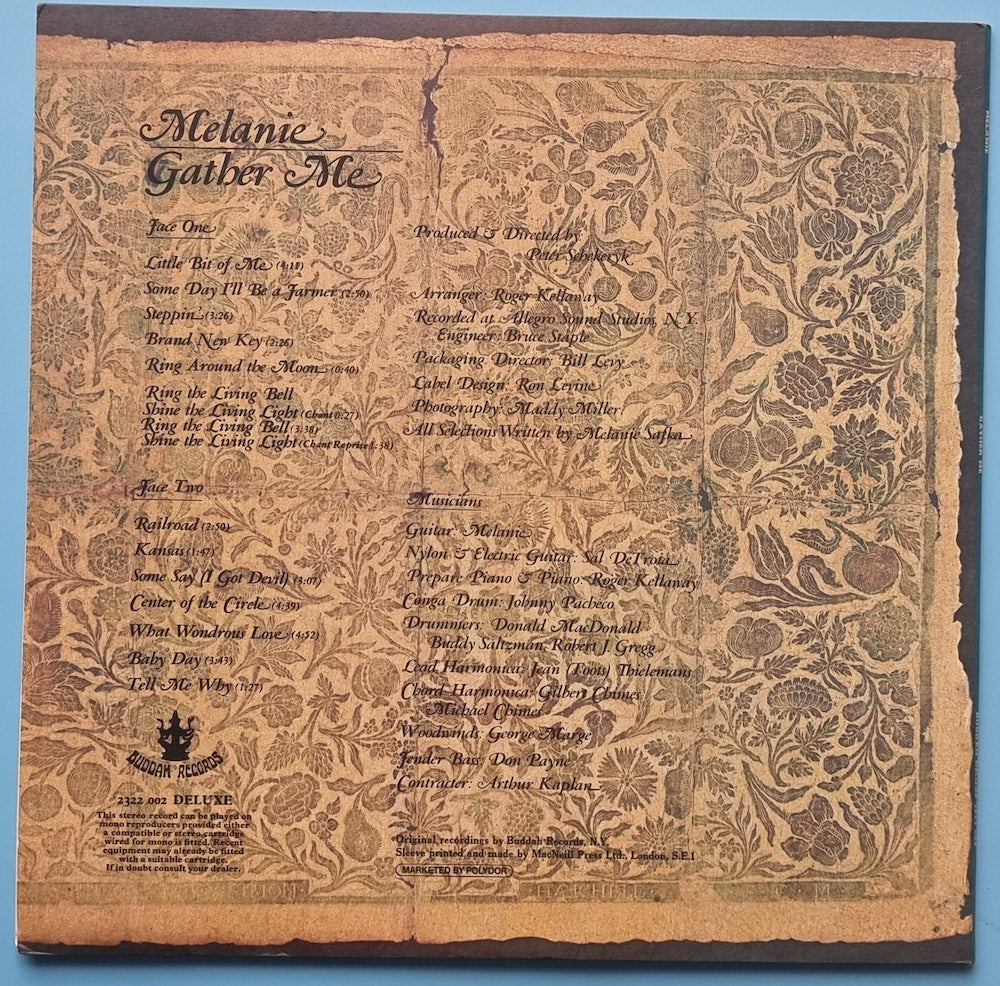 Melanie
Gather Me
Face One
Little Bit of Me (4:11)
Some Day I'll Be a Farmer (2:50)
Steppin (3:26)
Brand New Key (2:26)
Ring Around the Moon (0:40)
Ring the Living Bell
Shine the Living Light (Chant 0:27)
Ring the Living Bell (3:38)
Shine the Living Light (Chant Reprise 1:38)
Face Two
Railroad (2:50)
Kansas (1:47)
Some Say (I Got Devil) (3:07)
Center of the Circle (4:39)
What Wondrous Love (4:52)
Baby Day (3:43)
Tell Me Why (1:27)
BUDDAH RECORDS
2322 002 DELUXE
This stereo record can be played on
mono reproducers provided either
a compatible or stereo cartridge
wired for mono is fitted. Recent
equipment may already be fitted
with a suitable cartridge.
If in doubt consult your dealer.
Produced & Directed by
Peter Schekeryk
Arranger: Roger Kellaway
Recorded at Allegro Sound Studios, N.Y.
Engineer: Bruce Staple
Packaging Director: Bill Levy
Label Design: Ron Levine
Photography: Maddy Miller
All Selections Written by Melanie Safka
Musicians
Guitar: Melanie
Nylon & Electric Guitar: Sal DeTroia
Prepare Piano & Piano: Roger Kellaway
Conga Drum: Johnny Pacheco
Drummers: Donald MacDonald
Buddy Saltzman, Robert J. Gregg
Lead Harmonica: Jean (Toots) Thielemans
Chord Harmonica: Gilbert Chimes
Michael Chimes
Woodwinds: George Marge
Fender Bass: Don Payne
Contracter: Arthur Kaplan
Original recordings by Buddah Records, N.Y.
Sleeve printed and made by MacNeill Press Ltd., London, S.E.1
MARKETED BY POLYDOR
MELANIE
GATHER ME